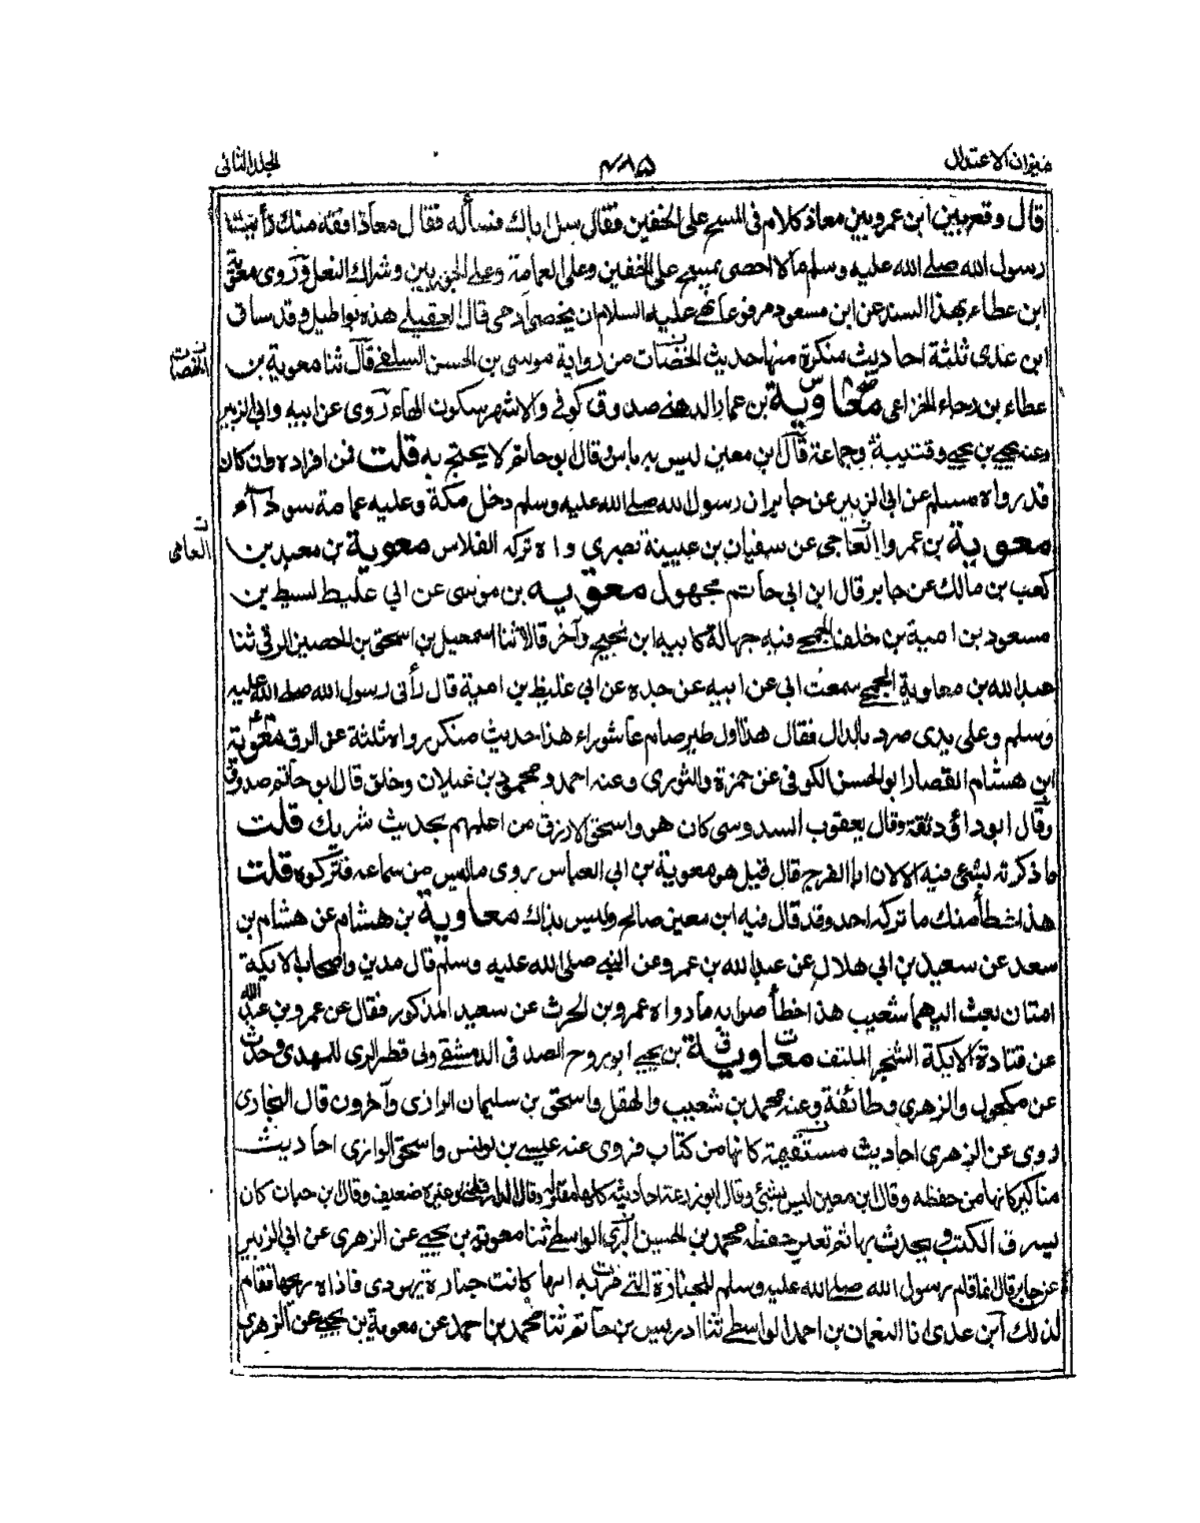 ميزان الاعتدال
٤٨٥
المجلد الثانى
قال وقع بين ابن عمر وبين معاذ كلام فى المسح على الخفين فقال سل اباك فسأله فقال معاذ افقه منك رأيت
رسول الله صلے الله عليه وسلم مالا احصى يمسح على الخفين وعلى العمامة وعلى الجوربين وشراك النعل وروى معوية
ابن عطاء بهذا السند عن ابن مسعود مرفوعا نهى عليه السلام ان يخصى آدمى قال العقيلے هذه بواطيل وقد ساق
ابن عدى ثلثة احاديث منكرة منها حديث من رواية موسى بن الحسن السلفے قال ثنا معوية بن
عطاء بن رجاء الخزاعى معاوية بن عمار الدهنے صدوق كوفى والاشهر سكون الهاء روى عن ابيه وابى الزبير
وعنه يحيے بن يحيے وقتيبة وجماعة قال ابن معين ليس به باس وقال ابو حاتم لا يحتج به قلت فمن افراده وان كان
قد رواه مسلم عن ابى الزبير عن جابر ان رسول الله صلے الله عليه وسلم دخل مكة وعليه عمامة سوداء
معوية بن عمرو العاجى عن سفيان بن عيينة بصرى واه تركه الفلاس معوية بن معبد بن
كعب بن مالك عن جابر قال ابن ابى حاتم مجهول معوية بن موسى عن ابى غليظ نشيط بن
مسعود بن امية بن خلف الجمحے فيه جهالة كابيه ابن نجيح وآخر قالا ثنا اسمعيل بن اسحق بن الحصين الرقى ثنا
عبد الله بن معاوية الجمحے سمعت ابى عن ابيه عن جده عن ابى غليظ بن امية قال رأنى رسول الله صلے الله عليه
وسلم وعلى يدى صرد بالدال فقال هذا اول طير صام عاشوراء هذا حديث منكر رواه ثلثة عن الرقى معوية
ابن هشام القصار ابو الحسن الكوفى عن حمزة والثورى وعنه احمد ومحمود بن غيلان وخلق قال ابو حاتم صدوق
وقال ابو داؤد ثقة وقال يعقوب السدوسى كان هو واسحق الازرق من اعلمهم بحديث شريك قلت
ما ذكرته لشئ فيه الا لان ابا الفرج قال قيل هو معوية بن ابى العباس روى ما ليس من سماعه فتركوه قلت
هذا خطأ منك ما تركه احد وقد قال فيه ابن معين صالح وليس بذاك معاوية بن هشام عن هشام بن
سعد عن سعيد بن ابى هلال عن عبد الله بن عمرو عن النبے صلى الله عليه وسلم قال مدين واصحاب الايكة
امتان بعث اليهما شعيب هذا خطأ صوابه ما رواه عمرو بن الحرث عن سعيد المذكور فقال عن عمرو بن عبد الله
عن قتادة الايكة الشجر الملتف معاوية بن يحيے ابو روح الصدفى الدمشقى ولى قطر الرى للمهدى وحدث
عن مكحول والزهرى وطائفة وعنه محمد بن شعيب والهقل واسحق بن سليمان الرازى وآخرون قال البخارى
روى عن الزهرى احاديث مستقيمة كانها من كتاب فروى عنه عيسے بن يونس واسحق الرازى احاديث
مناكير كانها من حفظه وقال ابن معين ليس بشئ وقال ابو زرعة احاديثه كلها مقلوبة وقال الدارقطنے وغيره ضعيف وقال ابن حبان كان
يسرق الكتب ويحدث بها ثم تغير حفظه محمد بن الحسين البرى الواسطے ثنا معوية بن يحيے عن الزهرى عن ابى الزبير
عن جابر قال انما قام رسول الله صلے الله عليه وسلم للجنازة التے مرت به انها كانت جنازة يهودى فاذاه ريحها فقام
لذلك ابن عدى انا النعمان بن احمد الواسطے ثنا ادريس بن حاتم ثنا محمد بن احمد عن معوية بن يحيے عن الزهرى
العامى